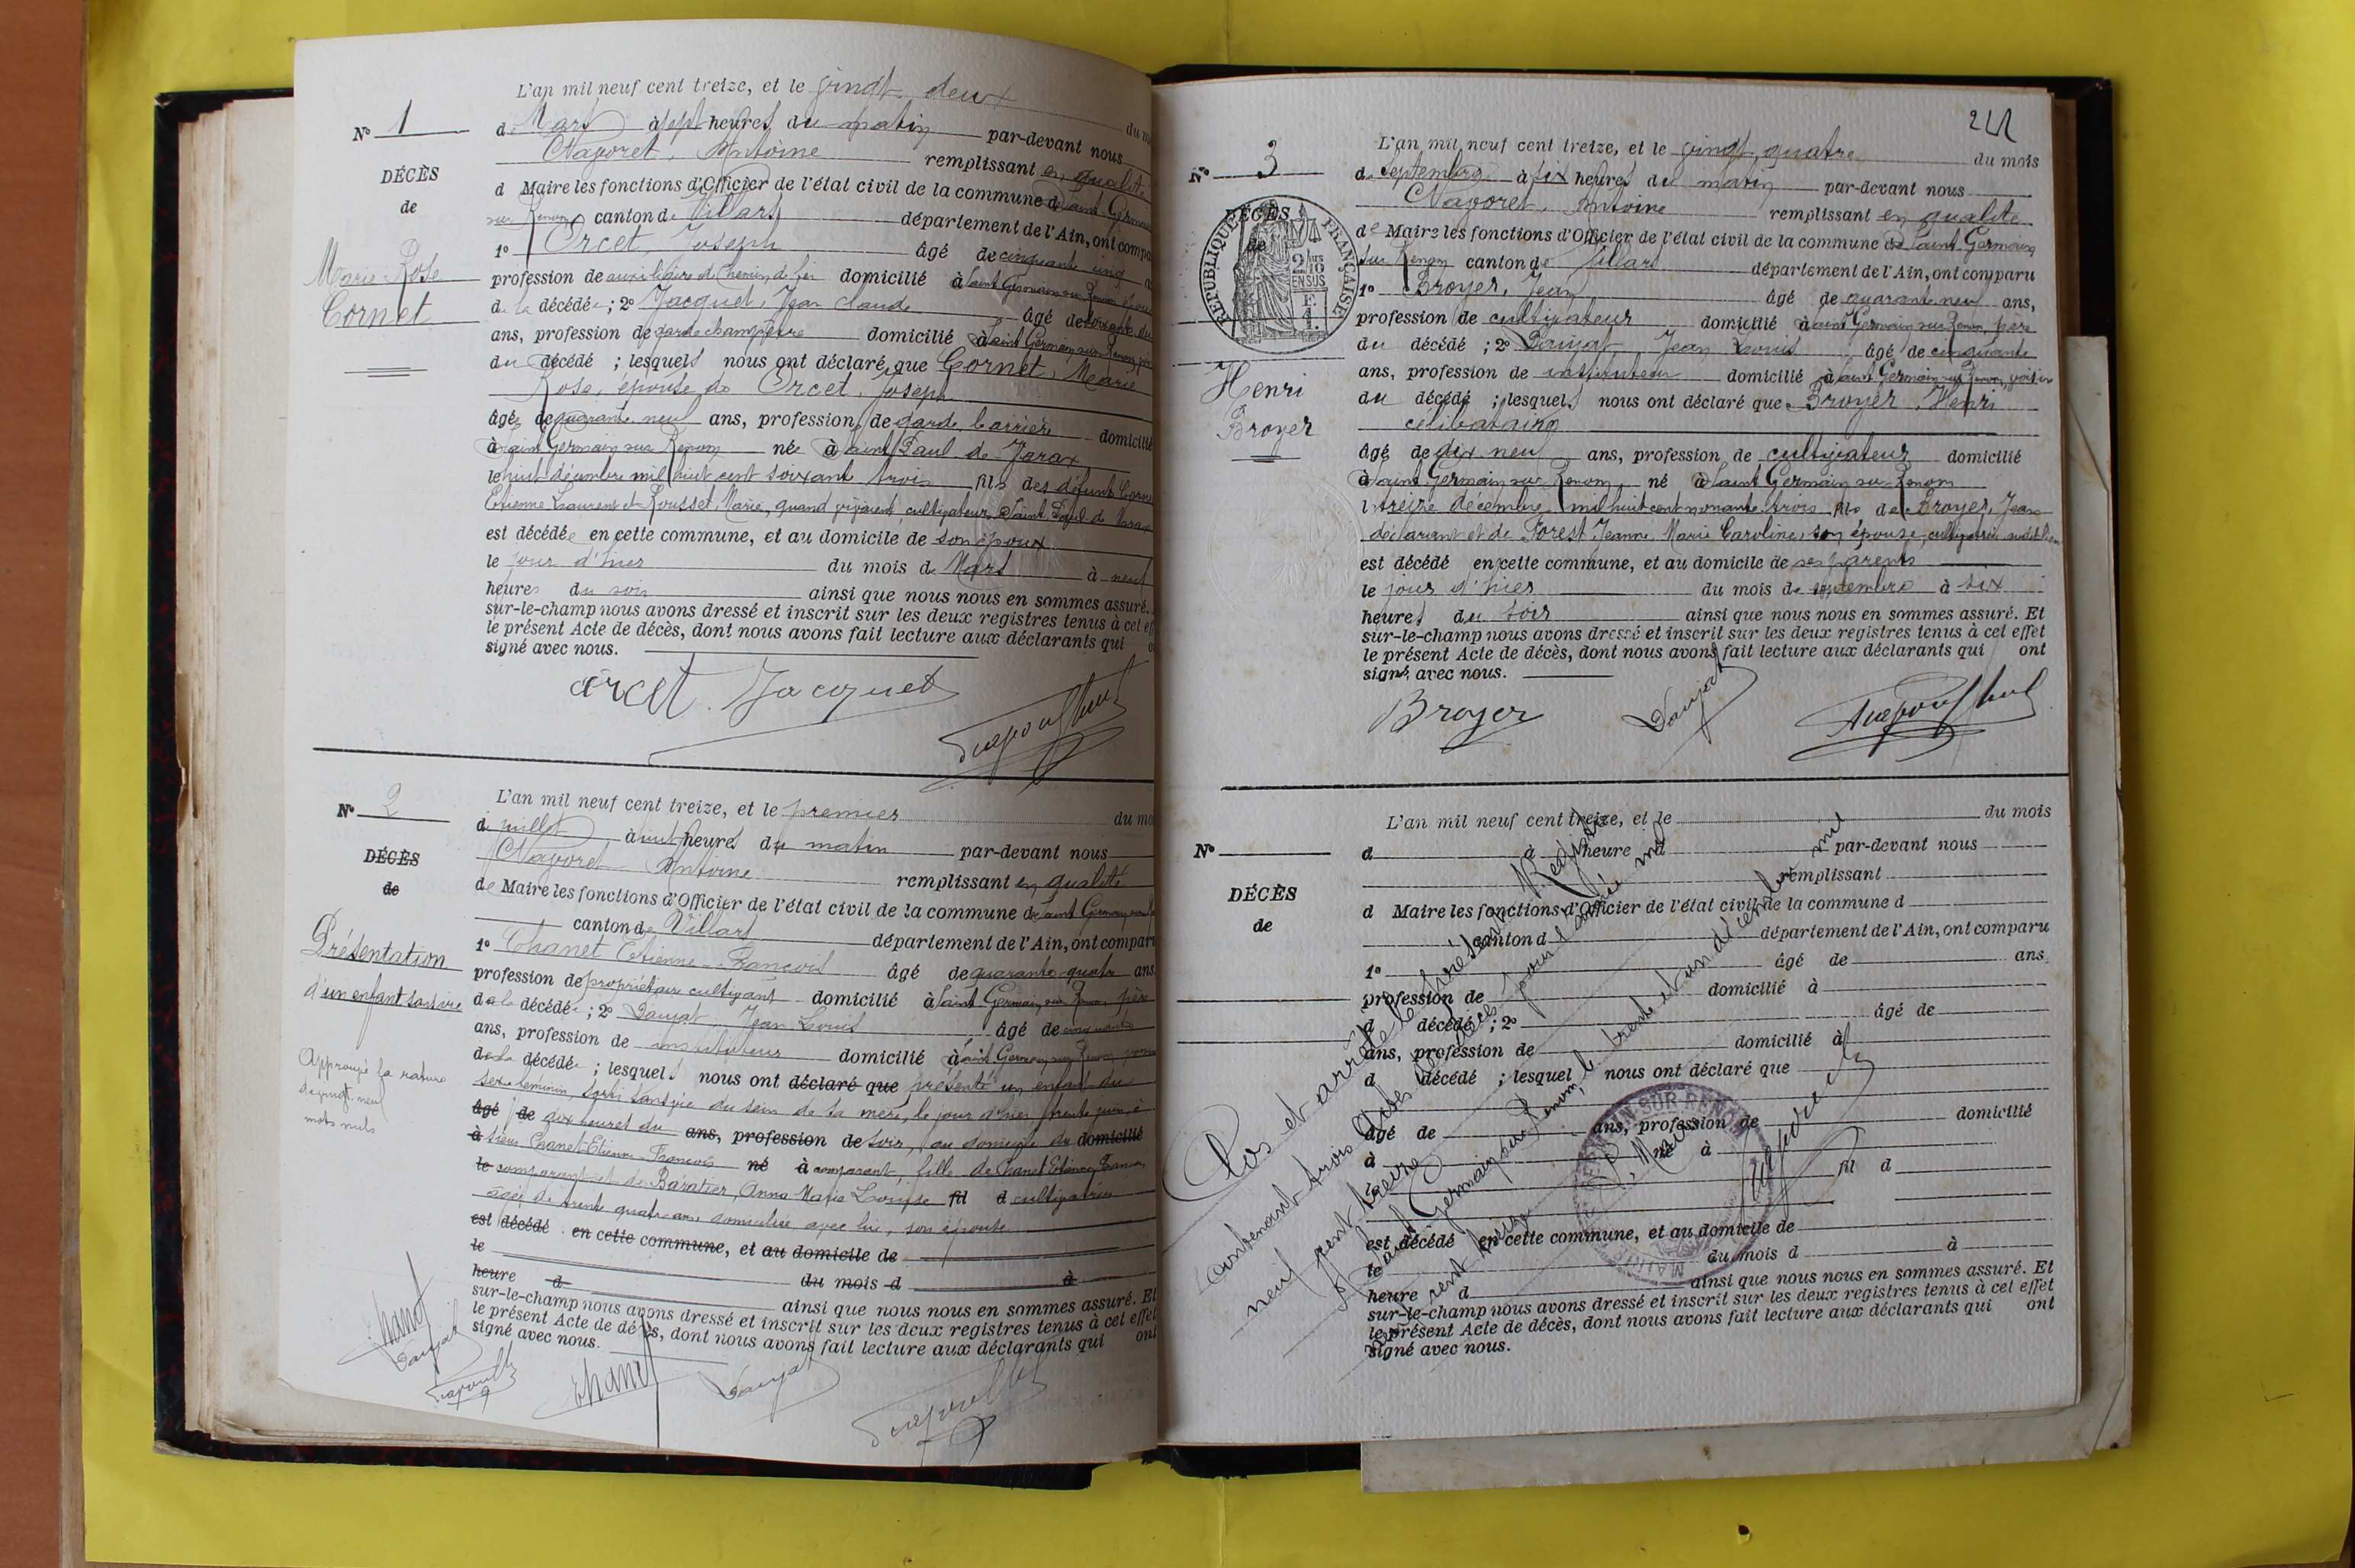 N° 1
DÉCÈS
de
Marie-Rose
Cornet
L'an mil neuf cent treize, et le vingt deux
de Mars à sept heures du matin par-devant nous
Antoine remplissant en qualité
de Maire les fonctions d'Officier de l'état civil de la commune de Saint Germain
sur Renon canton de Villars département de l'Ain, ont
1° Orcet, Joseph âgé de cinquante cinq
profession de auxiliaire de Chemin de fer domicilié à Saint Germain sur Renon
de la décédée ; 2° Jacquet, Jean Claude âgé de
ans, profession de garde champêtre domicilié à Saint Germain sur Renon
du décédé ; lesquels nous ont déclaré que Cornet, Marie
Rose, épouse de Orcet, Joseph
âgée de quarante neuf ans, profession de garde barrière domicilié
à Saint Germain sur Renon née à Saint Paul de Varax
le huit décembre mil huit cent soixante trois fils des défunts
Etienne Laurent et Rousset, Marie, quand vivaient cultivateurs à Saint Paul de Varax
est décédée en cette commune, et au domicile de son époux
le jour d'hier du mois de Mars à neuf
heures du soir ainsi que nous nous en sommes assuré.
sur-le-champ nous avons dressé et inscrit sur les deux registres tenus à cet
le présent Acte de décès, dont nous avons fait lecture aux déclarants qui
signé avec nous.
Orcet Jacquet
N° 2
DÉCÈS
de
Présentation
d'un enfant sans vie
Approuvé la rature
de vingt neuf
mots nuls
L'an mil neuf cent treize, et le premier
de juillet à huit heures du matin par-devant nous
Antoine remplissant en qualité
de Maire les fonctions d'Officier de l'état civil de la commune de Saint Germain
canton de Villars département de l'Ain, ont
1° Chanet Etienne-François âgé de quarante quatre ans
profession de propriétaire cultivant domicilié à Saint Germain sur Renon père
de la décédée ; 2° Daujat Jean Louis âgé de cinquante
ans, profession de instituteur domicilié à Saint Germain sur Renon
de la décédée ; lesquels nous ont déclaré que présenté un enfant du
sexe féminin, sorti sans vie du sein de sa mère, le jour d'hier trente juin, à
âgé de dix heures du ans, profession de soir, au domicile du domicilié
à sieur Chanet Etienne-François né à comparant, fille de Chanet Etienne François
le comparant et de Baratier, Anna Marie Louise fil d cultivatrice
âgée de trente quatre ans, domiciliée avec lui, son épouse
est décédé en cette commune, et au domicile de
le
heure d du mois d à
ainsi que nous nous en sommes assuré. Et
sur-le-champ nous avons dressé et inscrit sur les deux registres tenus à cet effet
le présent Acte de décès, dont nous avons fait lecture aux déclarants qui ont
signé avec nous.
Chanet
Daujat
Chanet Daujat
N° 3
DÉCÈS
de
RÉPUBLIQUE FRANÇAISE
2/10
EN SUS
Henri
Broyer
L'an mil neuf cent treize, et le vingt quatre du mois
de Septembre à six heures du matin par-devant nous
Antoine remplissant en qualité
de Maire les fonctions d'Officier de l'état civil de la commune de Saint Germain
sur Renon canton de Villars département de l'Ain, ont comparu
1° Broyer, Jean âgé de quarante neuf ans,
profession de cultivateur domicilié à Saint Germain sur Renon, père
du décédé ; 2° Daujat, Jean Louis âgé de cinquante
ans, profession de instituteur domicilié à Saint Germain sur Renon, voisin
du décédé ; lesquels nous ont déclaré que Broyer, Henri
célibataire
âgé de dix neuf ans, profession de cultivateur domicilié
à Saint Germain sur Renon, né à Saint Germain sur Renon
le treize décembre mil huit cent nonante trois fils de Broyer, Jean
déclarant et de Forest Jeanne Marie Caroline, son épouse, cultivatrice
est décédé en cette commune, et au domicile de ses parents
le jour d'hier du mois de septembre à six
heures du soir ainsi que nous nous en sommes assuré. Et
sur-le-champ nous avons dressé et inscrit sur les deux registres tenus à cet effet
le présent Acte de décès, dont nous avons fait lecture aux déclarants qui ont
signé avec nous.
Broyer Daujat
N°
DÉCÈS
de
L'an mil neuf cent treize, et le du mois
d à heure d par-devant nous
remplissant
d Maire les fonctions d'Officier de l'état civil de la commune d
canton d département de l'Ain, ont comparu
1° âgé de ans,
profession de domicilié à
d décédé ; 2° âgé de
ans, profession de domicilié à
d décédé ; lesquel nous ont déclaré que
âgé de ans, profession de domicilié
à né à
le fil d
est décédé en cette commune, et au domicile de
le du mois d à
heure d ainsi que nous nous en sommes assuré. Et
sur-le-champ nous avons dressé et inscrit sur les deux registres tenus à cet effet
le présent Acte de décès, dont nous avons fait lecture aux déclarants qui ont
signé avec nous.
Clos et arrêté le présent Registre
contenant trois Actes de décès pour l'année mil
neuf cent treize
A Saint Germain sur Renon, le trente et un décembre mil
neuf cent treize
Le Maire